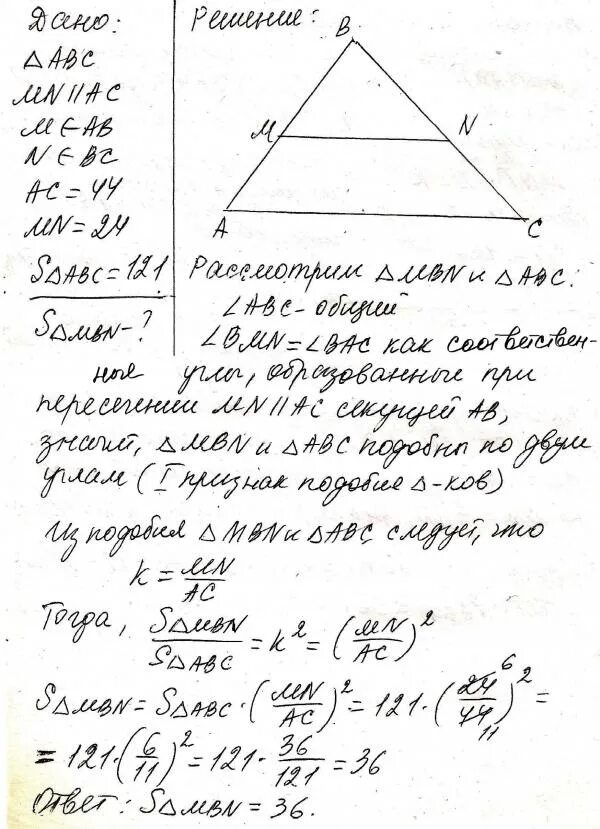 Дано:
△ABC
MN||AC
M∈AB
N∈BC
AC=44
MN=24
S△ABC=121
S△MBN-?
Решение:
B
M
N
A
C
Рассмотрим △MBN и △ABC:
∠ABC-общий
∠BMN=∠BAC как соответствен-
ные углы, образованные при
пересечении MN||AC секущей AB,
значит, △MBN и △ABC подобны по двум
углам (I признак подобия △-ков)
Из подобия △MBN и △ABC следует, что
k = MN/AC
Тогда, S△MBN/S△ABC = k² = (MN/AC)²
S△MBN = S△ABC·(MN/AC)² = 121·(24/44)² = 6 11
= 121·(6/11)² = 121·36/121 = 36
Ответ: S△MBN = 36.